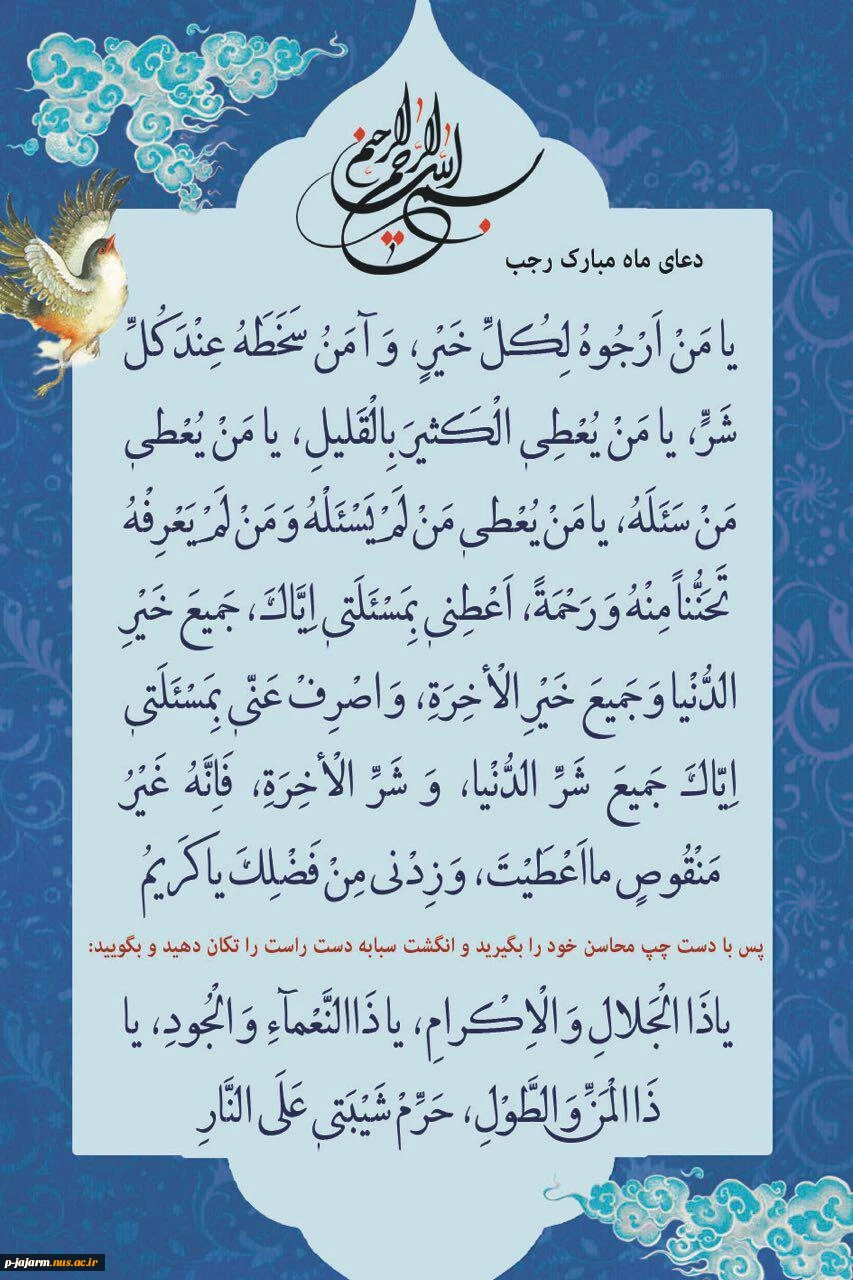 بسم الله الرحمن الرحیم
دعای ماه مبارک رجب
یا مَنْ اَرْجُوهُ لِكُلِّ خَیْرٍ، وَ آمَنُ سَخَطَهُ عِنْدَ كُلِّ
شَرٍّ، یا مَنْ یُعْطِی الْكَثیرَ بِالْقَلیلِ، یا مَنْ یُعْطی
مَنْ سَئَلَهُ، یا مَنْ یُعْطی مَنْ لَمْ یَسْئَلْهُ وَ مَنْ لَمْ یَعْرِفْهُ
تَحَنُّناً مِنْهُ وَ رَحْمَةً، اَعْطِنی بِمَسْئَلَتی اِیَّاكَ، جَمیعَ خَیْرِ
الدُّنْیا وَ جَمیعَ خَیْرِ الْأخِرَةِ، وَ اصْرِفْ عَنّی بِمَسْئَلَتی
اِیّاكَ جَمیعَ شَرِّ الدُّنْیا، وَ شَرِّ الْأخِرَةِ، فَاِنَّهُ غَیْرُ
مَنْقُوصٍ ما اَعْطَیْتَ، وَ زِدْنی مِنْ فَضْلِكَ یا كَریمُ
پس با دست چپ محاسن خود را بگیرید و انگشت سبابه دست راست را تکان دهید و بگویید:
یا ذَا الْجَلالِ وَ الْاِكْرامِ، یا ذَا النَّعْمآءِ وَ الْجُودِ، یا
ذَا الْمَنِّ وَ الطَّوْلِ، حَرِّمْ شَیْبَتی عَلَی النَّارِ
p-jajarm.nus.ac.ir